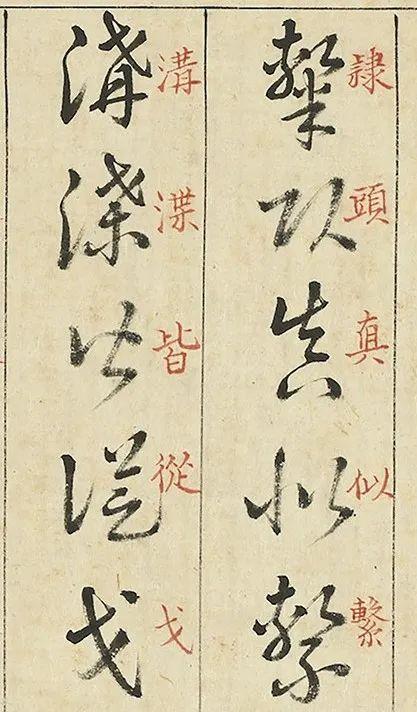 隷頭真似繫
隷頭真似繫
溝渫皆從戈
溝渫皆從戈